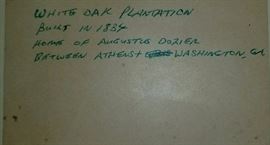 WHITE OAK PLANTATION
BUILT IN 1834
HOME OF AUGUSTUS DOZIER
BETWEEN ATHENS + WASHINGTON, GA